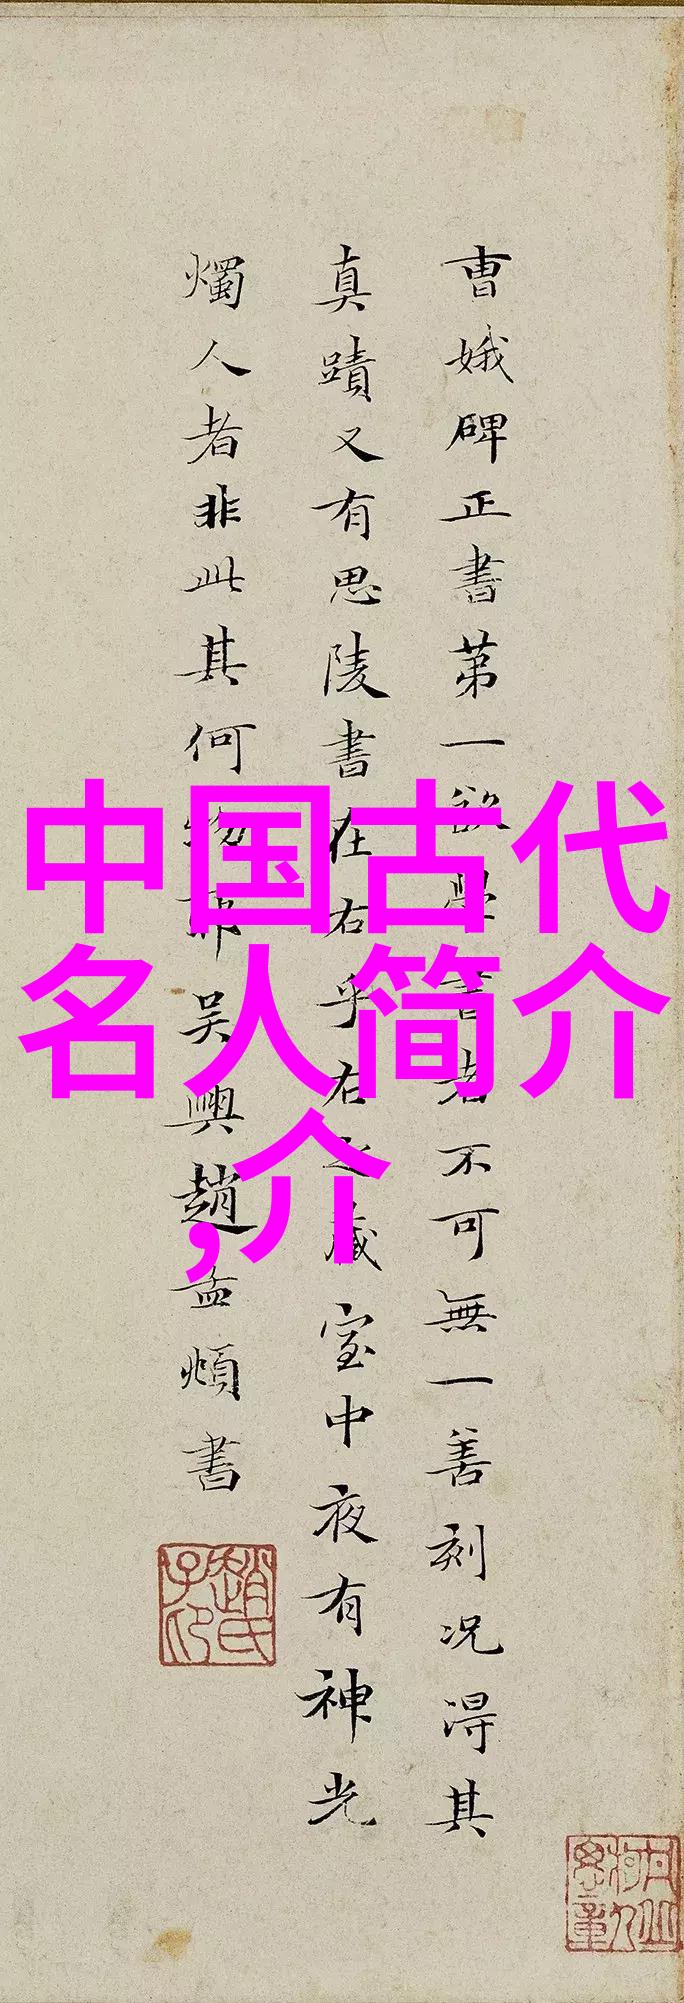 曹娥碑正書第一欲學書者不可無一善刻況得其
真蹟又有思陵書在右乎右之藏室中夜有神光
燭人者非此其何物耶吳興趙孟頫書
趙氏子昂
中国古代
名人简介
,介